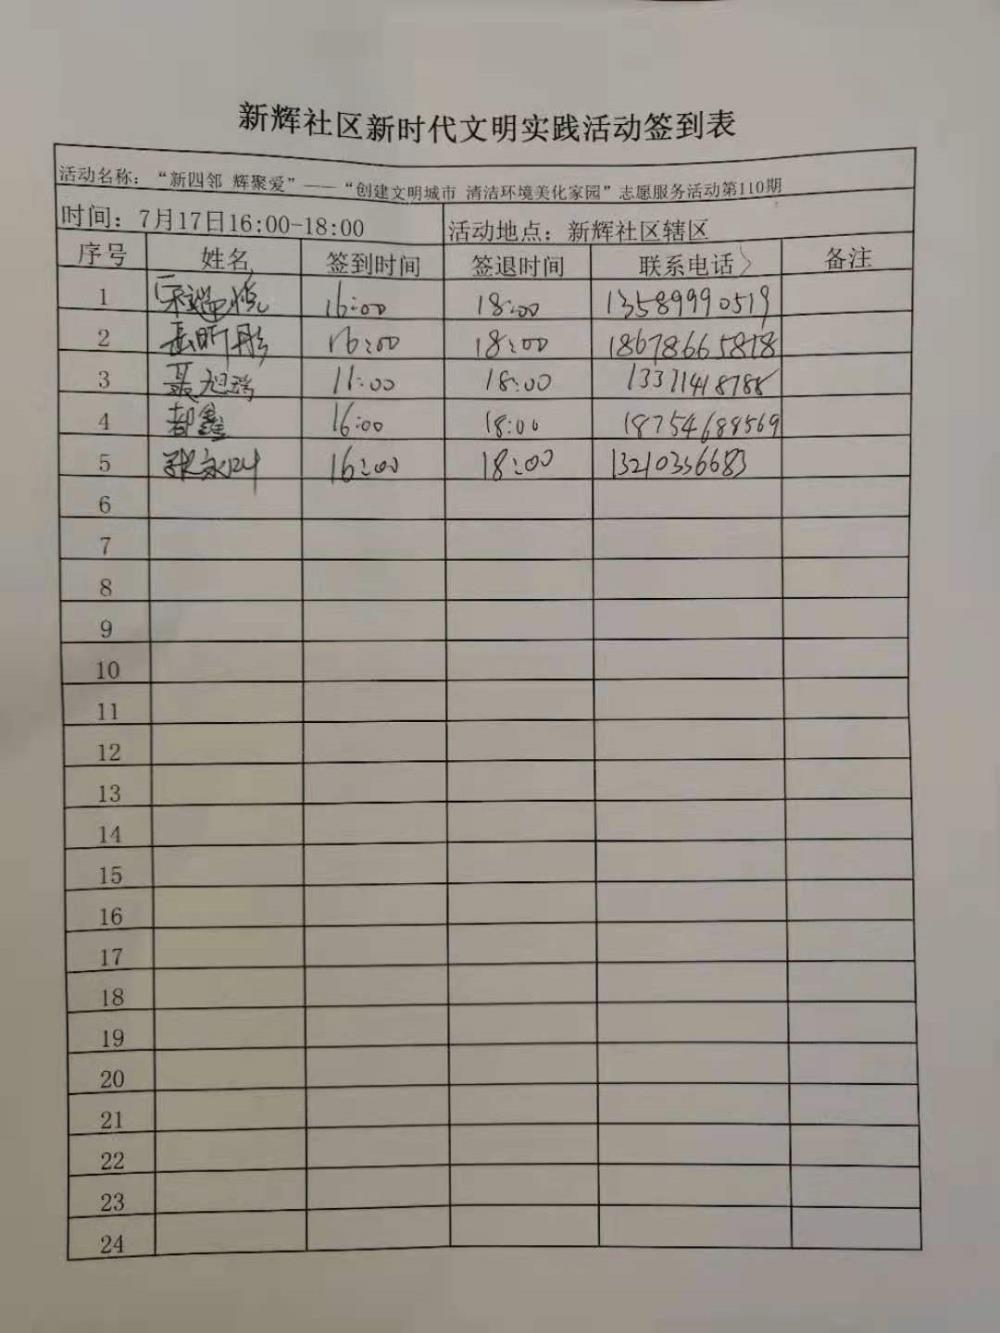 新辉社区新时代文明实践活动签到表
活动名称：“新四邻 辉聚爱”——“创建文明城市 清洁环境美化家园”志愿服务活动第110期
时间：7月17日16:00-18:00 活动地点：新辉社区辖区
序号 姓名 签到时间 签退时间 联系电话 备注
1 16:00 18:00 13589990519
2 岳昕彤 16:00 18:00 18678665878
3 聂旭瑞 11:00 18:00 13371418788
4 都鑫 16:00 18:00 18754688569
5 16:00 18:00 13210336683
6
7
8
9
10
11
12
13
14
15
16
17
18
19
20
21
22
23
24